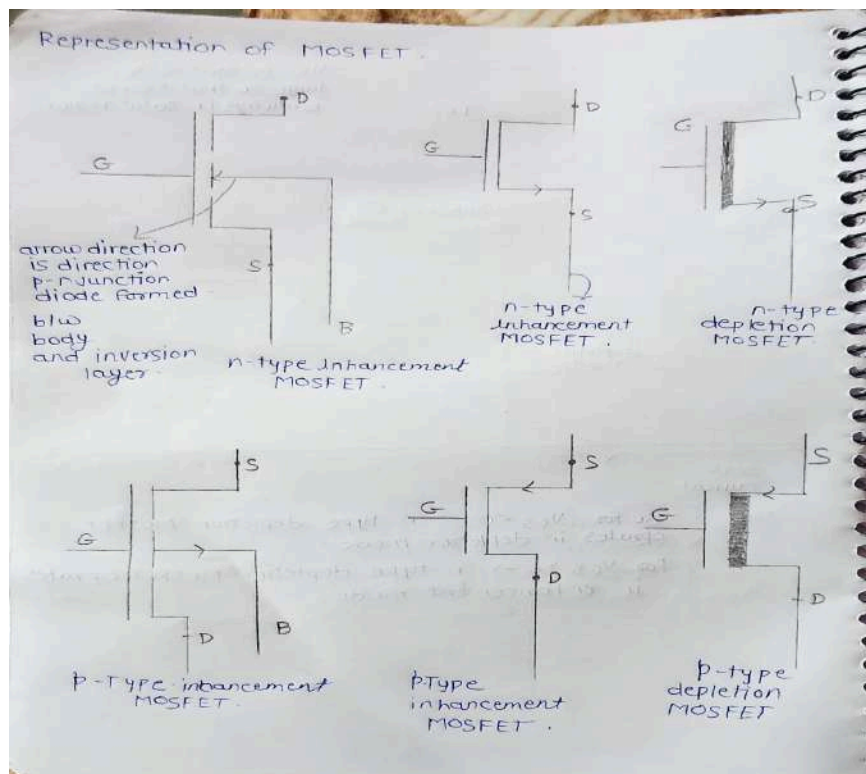 Representation of MOSFET.
D
G
S
B
arrow direction
is direction
p-n junction
diode formed
b/w
body
and inversion
layer.
n-type inhancement
MOSFET.
D
G
S
n-type
inhancement
MOSFET.
D
G
S
n-type
depletion
MOSFET.
S
G
D
B
p-Type inhancement
MOSFET.
S
G
D
p Type
inhancement
MOSFET.
S
G
D
p-type
depletion
MOSFET